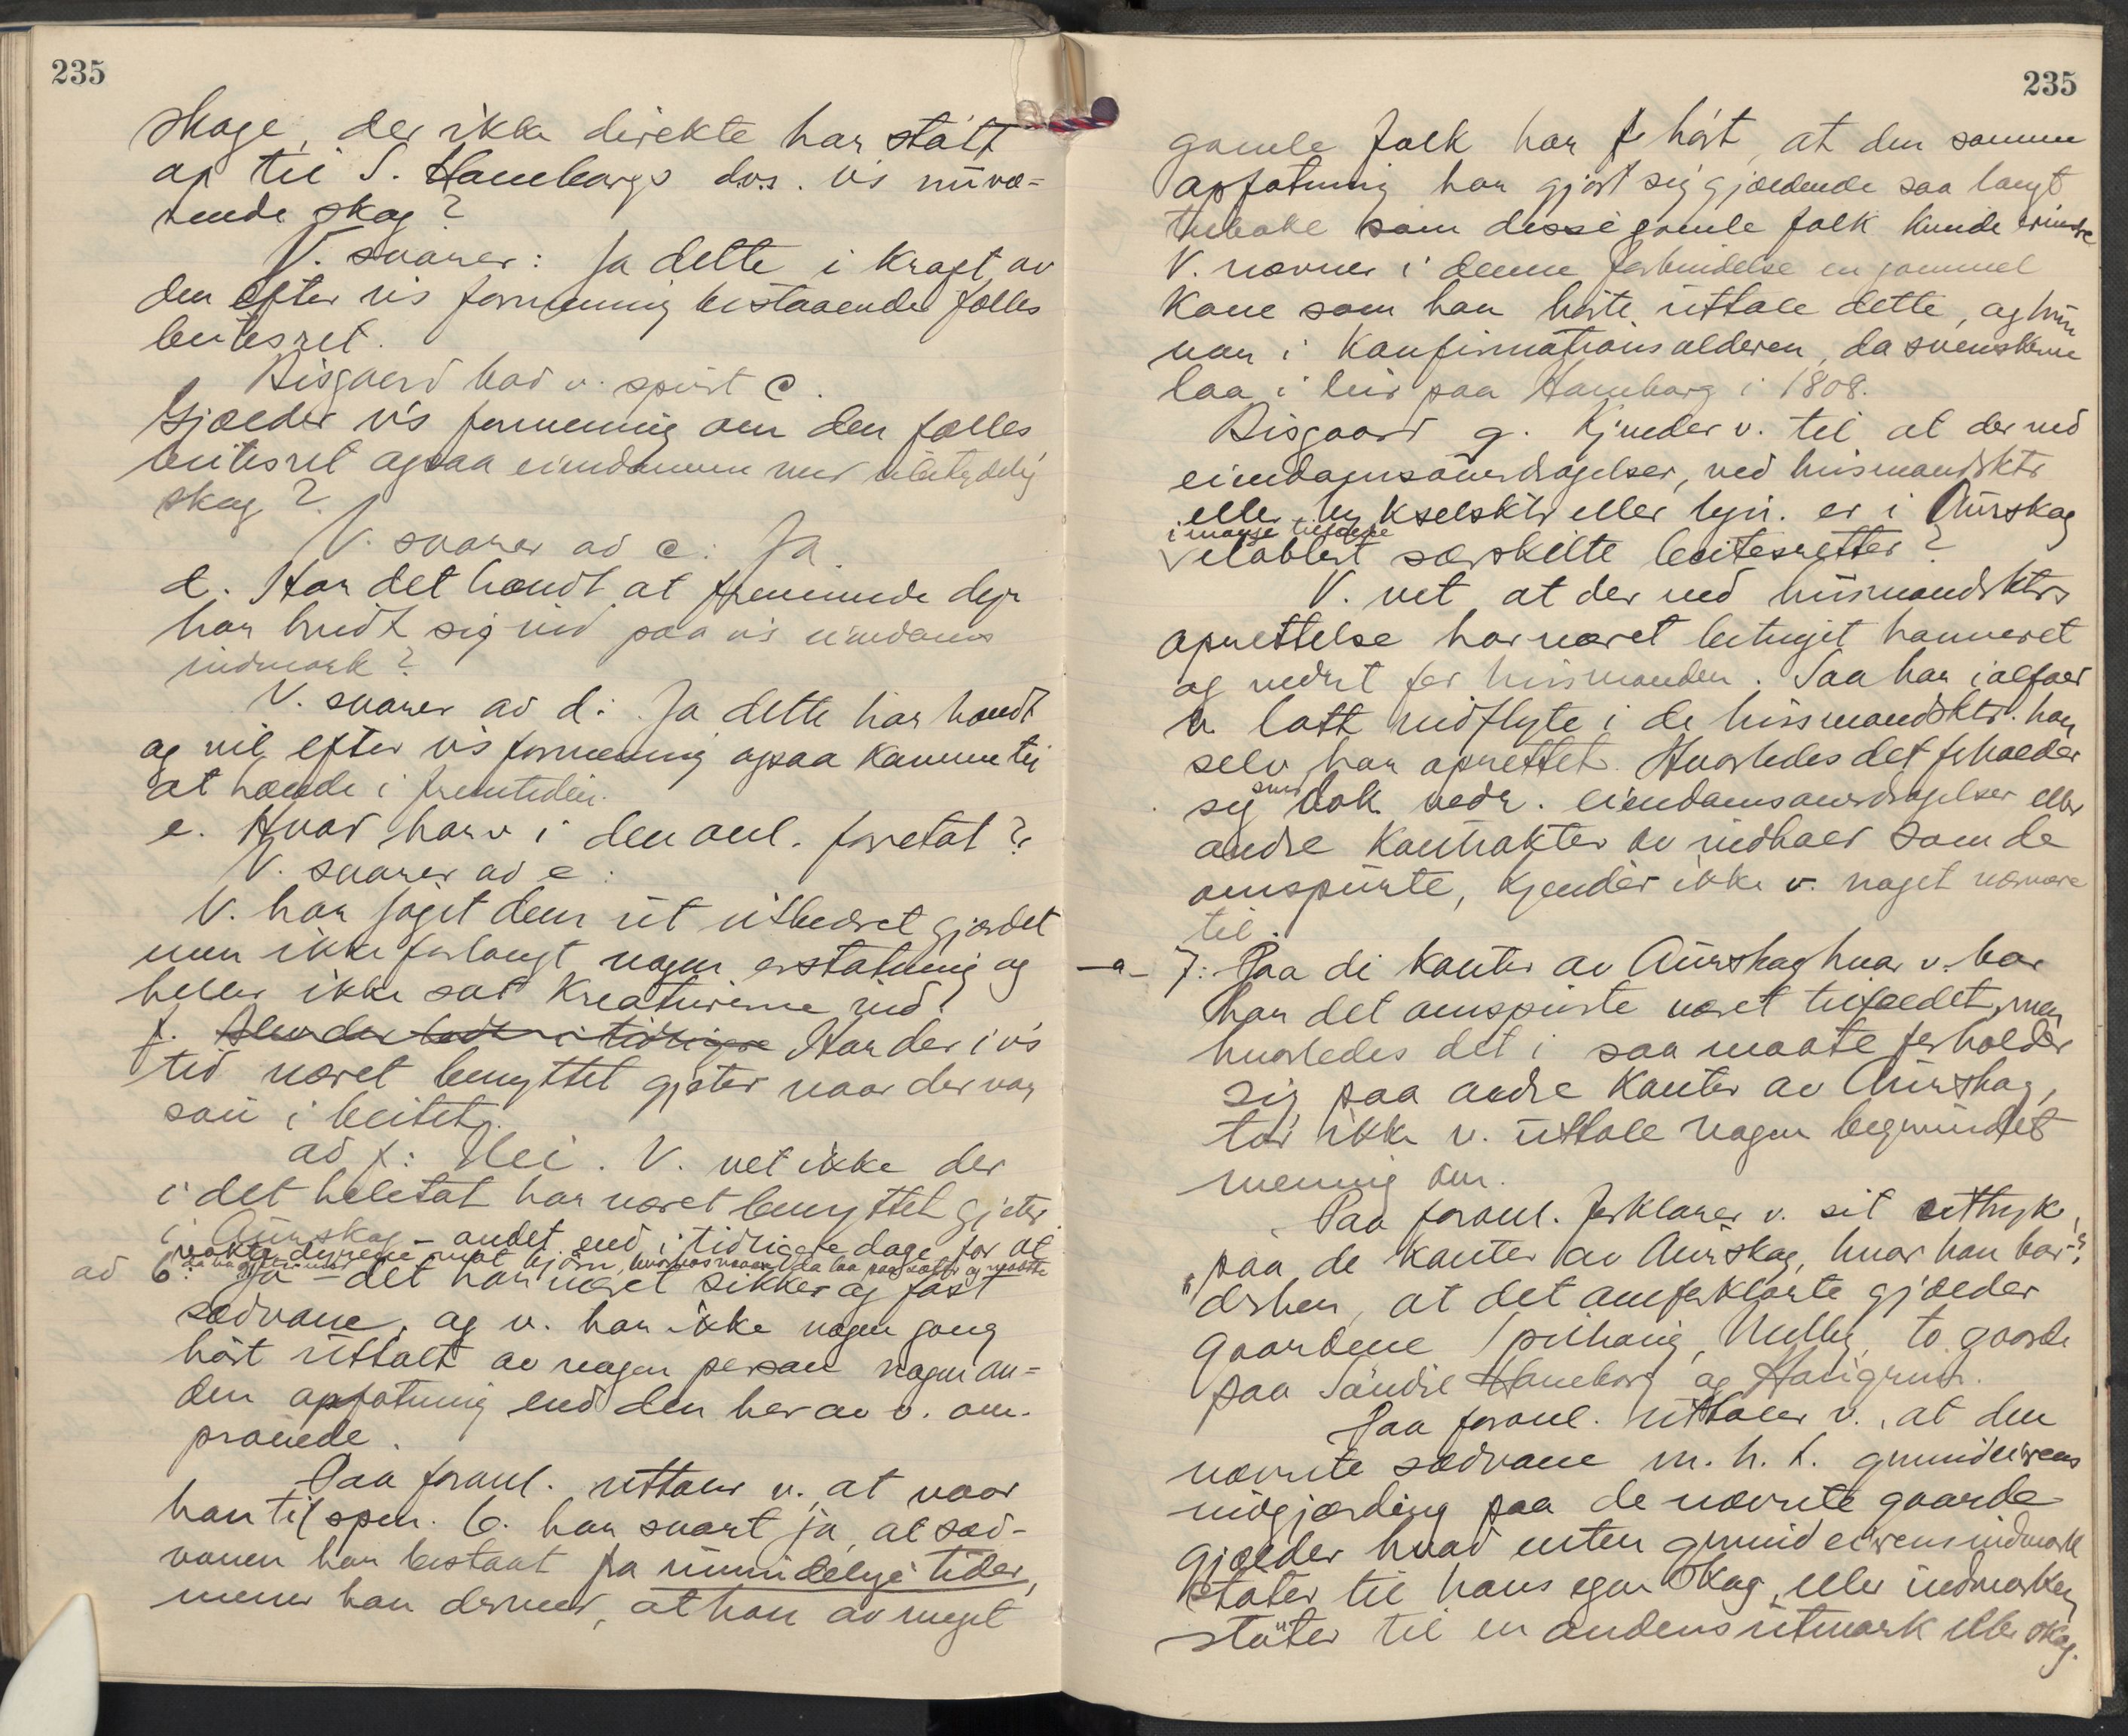 235
skoge, der ikke direkte har stött
op til S. Haneborgs d.v.s. v's nuvæ-
rende skog?
V. svarer: Ja dette i kraft av
den efter v's formening bestaaende fælles
beitesret.
Bisgaard bad v. spurt c.
Gjælder v's formening om den fælles
beitesret ogsaa eiendommen med ubetydelig
skog?
V. svarer ad c: Ja.
d. Har det hændt at fremmede dyr
har brudt sig ind paa v's eiendoms
indmark?
V. svarer ad d: Ja dette har hændt
og vil efter v's formening ogsaa komme til
at hænde i fremtiden.
e. Hvad har v i den anl. foretat?
V. svarer ad e:
V. har jaget dem ut utbedret gjærdet
men ikke forlangt nogen erstatning og
heller ikke sat kreaturerne ind.
f. Har der i v's
tid været benyttet gjeter naar der var
sau i beitet?
ad f: Nei. V. vet ikke der
i det heletat har været benyttet gjeter
i Aurskog – andet end i tidligere dage for at
vokte dyrene mot bjørn,
ad 6: Ja – det har været sikker og fast
sædvane, og v. har ikke nogen gang
hört uttalt av nogen person nogen an-
den opfatning end den her av v. om-
prövede.
Paa foranl. uttaler v., at naar
han til spm. 6. har svart ja, at sæd-
vanen har bestaat fra umindelige tider,
mener han dermed, at han av meget
235
gamle folk har hört, at den samme
opfatning har gjort sig gjældende saa langt
tilbake som disse gamle folk kunde erindre
V. nævner i denne forbindelse en gammel
kone som han hörte uttale dette, og hun
var i konfirmationsalderen, da svenskerne
laa i leir paa Haneborg i 1808.
Bisgaard q. Kjender v. til at der ved
eiendomsoverdragelser, ved husmandsktr
eller bykselsktr eller lign. er i Aurskog
i mange tilfælde
etablert særskilte beitesretter?
V. vet at der ved husmandsktrs
oprettelse har været betinget havneret
og vedret for husmanden. Saa har ialfald
v. latt indflyte i de husmandsktr. han
selv har oprettet. Hvorledes det forholder
sig dok vedr. eiendomsoverdragelser eller
andre kontrakter av indhold som de
omspurte, kjender ikke v. noget nærmere
til.
-a- 7: Paa de kanter av Aurskog hvor v. bor
har det omspurte været tilfældet, men
hvorledes det i saa maate forholder
sig paa andre kanter av Aurskog,
tör ikke v. uttale nogen begrundet
mening om.
Paa foranl. forklarer v. sit uttryk,
"paa de kanter av Aurskog, hvor han bor"
derhen, at det omforklarte gjælder
gaardene Spilhaug, Mellby, to gaarde
paa Söndre Haneborg og Haugrud.
Paa foranl. uttaler v., at den
nævnte sædvane m.h.t. grundeierens
indgjærding paa de nævnte gaarde
gjælder hvad enten grundeierens indmark
støter til hans egen skog, eller indmarken
støter til en andens utmark eller skog.